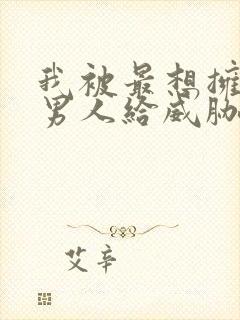 我被最想擁
男人給威脅
艾辛